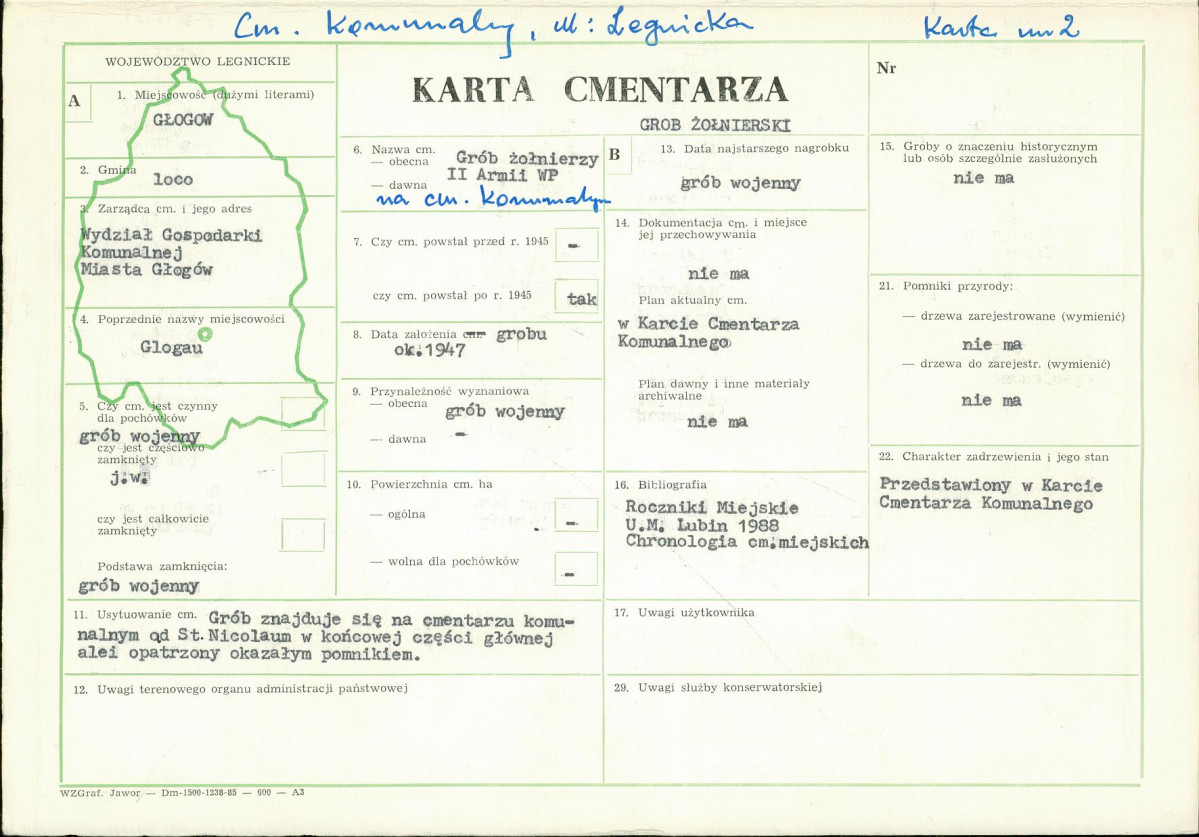 Cm. Komunalny, ul: Legnicka
Karta nr 2
WOJEWÓDZTWO LEGNICKIE
A
1. Miejscowość (dużymi literami)
GŁOGOW
2. Gmina
loco
3. Zarządca cm. i jego adres
Wydział Gospodarki
Komunalnej
Miasta Głogów
4. Poprzednie nazwy miejscowości
Glogau
5. Czy cm. jest czynny
dla pochówków
grób wojenny
czy jest częściowo
zamknięty
j.w.
czy jest całkowicie
zamknięty
Podstawa zamknięcia:
grób wojenny
KARTA CMENTARZA
GROB ŻOŁNIERSKI
6. Nazwa cm.
— obecna Grób żołnierzy
II Armii WP
— dawna
na cm. Komunalnym
7. Czy cm. powstał przed r. 1945 -
czy cm. powstał po r. 1945 tak
8. Data założenia cm. grobu
ok.1947
9. Przynależność wyznaniowa
— obecna grób wojenny
— dawna -
10. Powierzchnia cm. ha
— ogólna -
— wolna dla pochówków -
B
13. Data najstarszego nagrobku
grób wojenny
14. Dokumentacja cm. i miejsce
jej przechowywania
nie ma
Plan aktualny cm.
w Karcie Cmentarza
Komunalnego
Plan dawny i inne materiały
archiwalne
nie ma
16. Bibliografia
Roczniki Miejskie
U.M. Lubin 1988
Chronologia cm.miejskich
Nr
15. Groby o znaczeniu historycznym
lub osób szczególnie zasłużonych
nie ma
21. Pomniki przyrody:
— drzewa zarejestrowane (wymienić)
nie ma
— drzewa do zarejestr. (wymienić)
nie ma
22. Charakter zadrzewienia i jego stan
Przedstawiony w Karcie
Cmentarza Komunalnego
11. Usytuowanie cm. Grób znajduje się na cmentarzu komu-
nalnym ad St.Nicolaum w końcowej części głównej
alei opatrzony okazałym pomnikiem.
12. Uwagi terenowego organu administracji państwowej
17. Uwagi użytkownika
29. Uwagi służby konserwatorskiej
WZGraf. Jawor — Dm-1500-1238-85 — 600 — A3